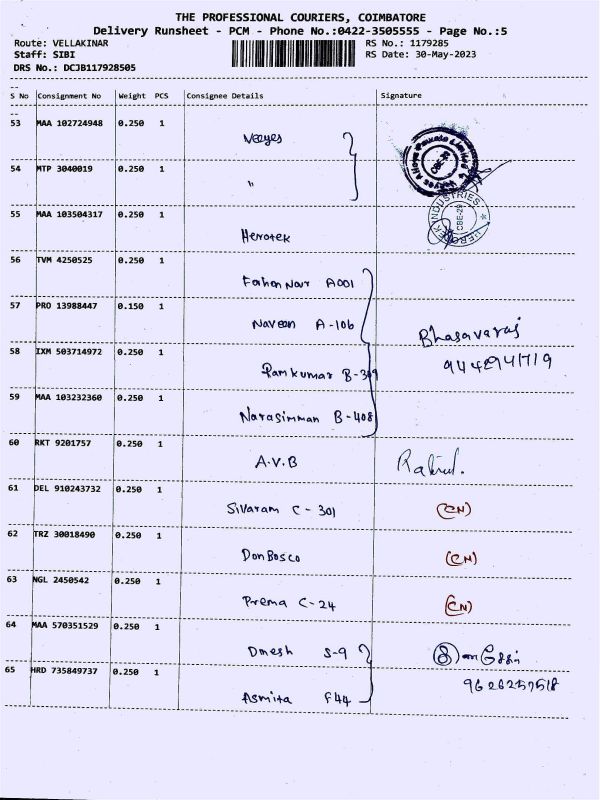 THE PROFESSIONAL COURIERS, COIMBATORE
Delivery Runsheet - PCM - Phone No.:0422-3505555 - Page No.:5
Route: VELLAKINAR RS No.: 1179285
Staff: SIBI RS Date: 30-May-2023
DRS No.: DCJB117928505
S No Consignment No Weight PCS Consignee Details Signature
53 MAA 102724948 0.250 1 Veeyes
54 MTP 3040019 0.250 1 "
CBE-29
55 MAA 103504317 0.250 1 Herotek
INDUSTRIES
CBE-29
56 TVM 4250525 0.250 1 Farhan Nour A001
57 PRO 13988447 0.150 1 Naveen A-106 Bhasavaraj
58 IXM 503714972 0.250 1 Ramkumar B-309 9442941719
59 MAA 103232360 0.250 1 Narasimman B-408
60 RKT 9201757 0.250 1 A.V.B
61 DEL 910243732 0.250 1 Sivaram C-301 (CN)
62 TRZ 30018490 0.250 1 Don Bosco (CN)
63 NGL 2450542 0.250 1 Prema C-24 (CN)
64 MAA 570351529 0.250 1 Dinesh S-9
65 HRD 735849737 0.250 1 Asmita F44 9626257518